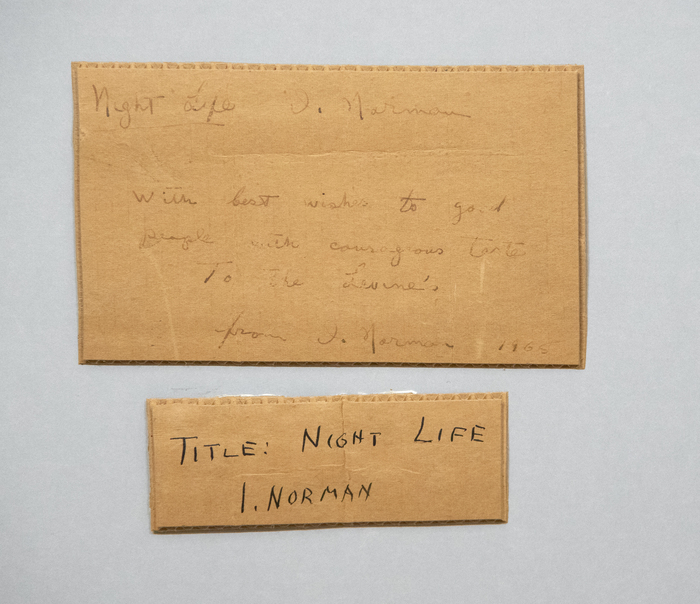 Night Life I. Norman
With best wishes to good
people with couragous taste
To the Levine's,
from I. Norman 1965
TITLE: NIGHT LIFE
I. NORMAN